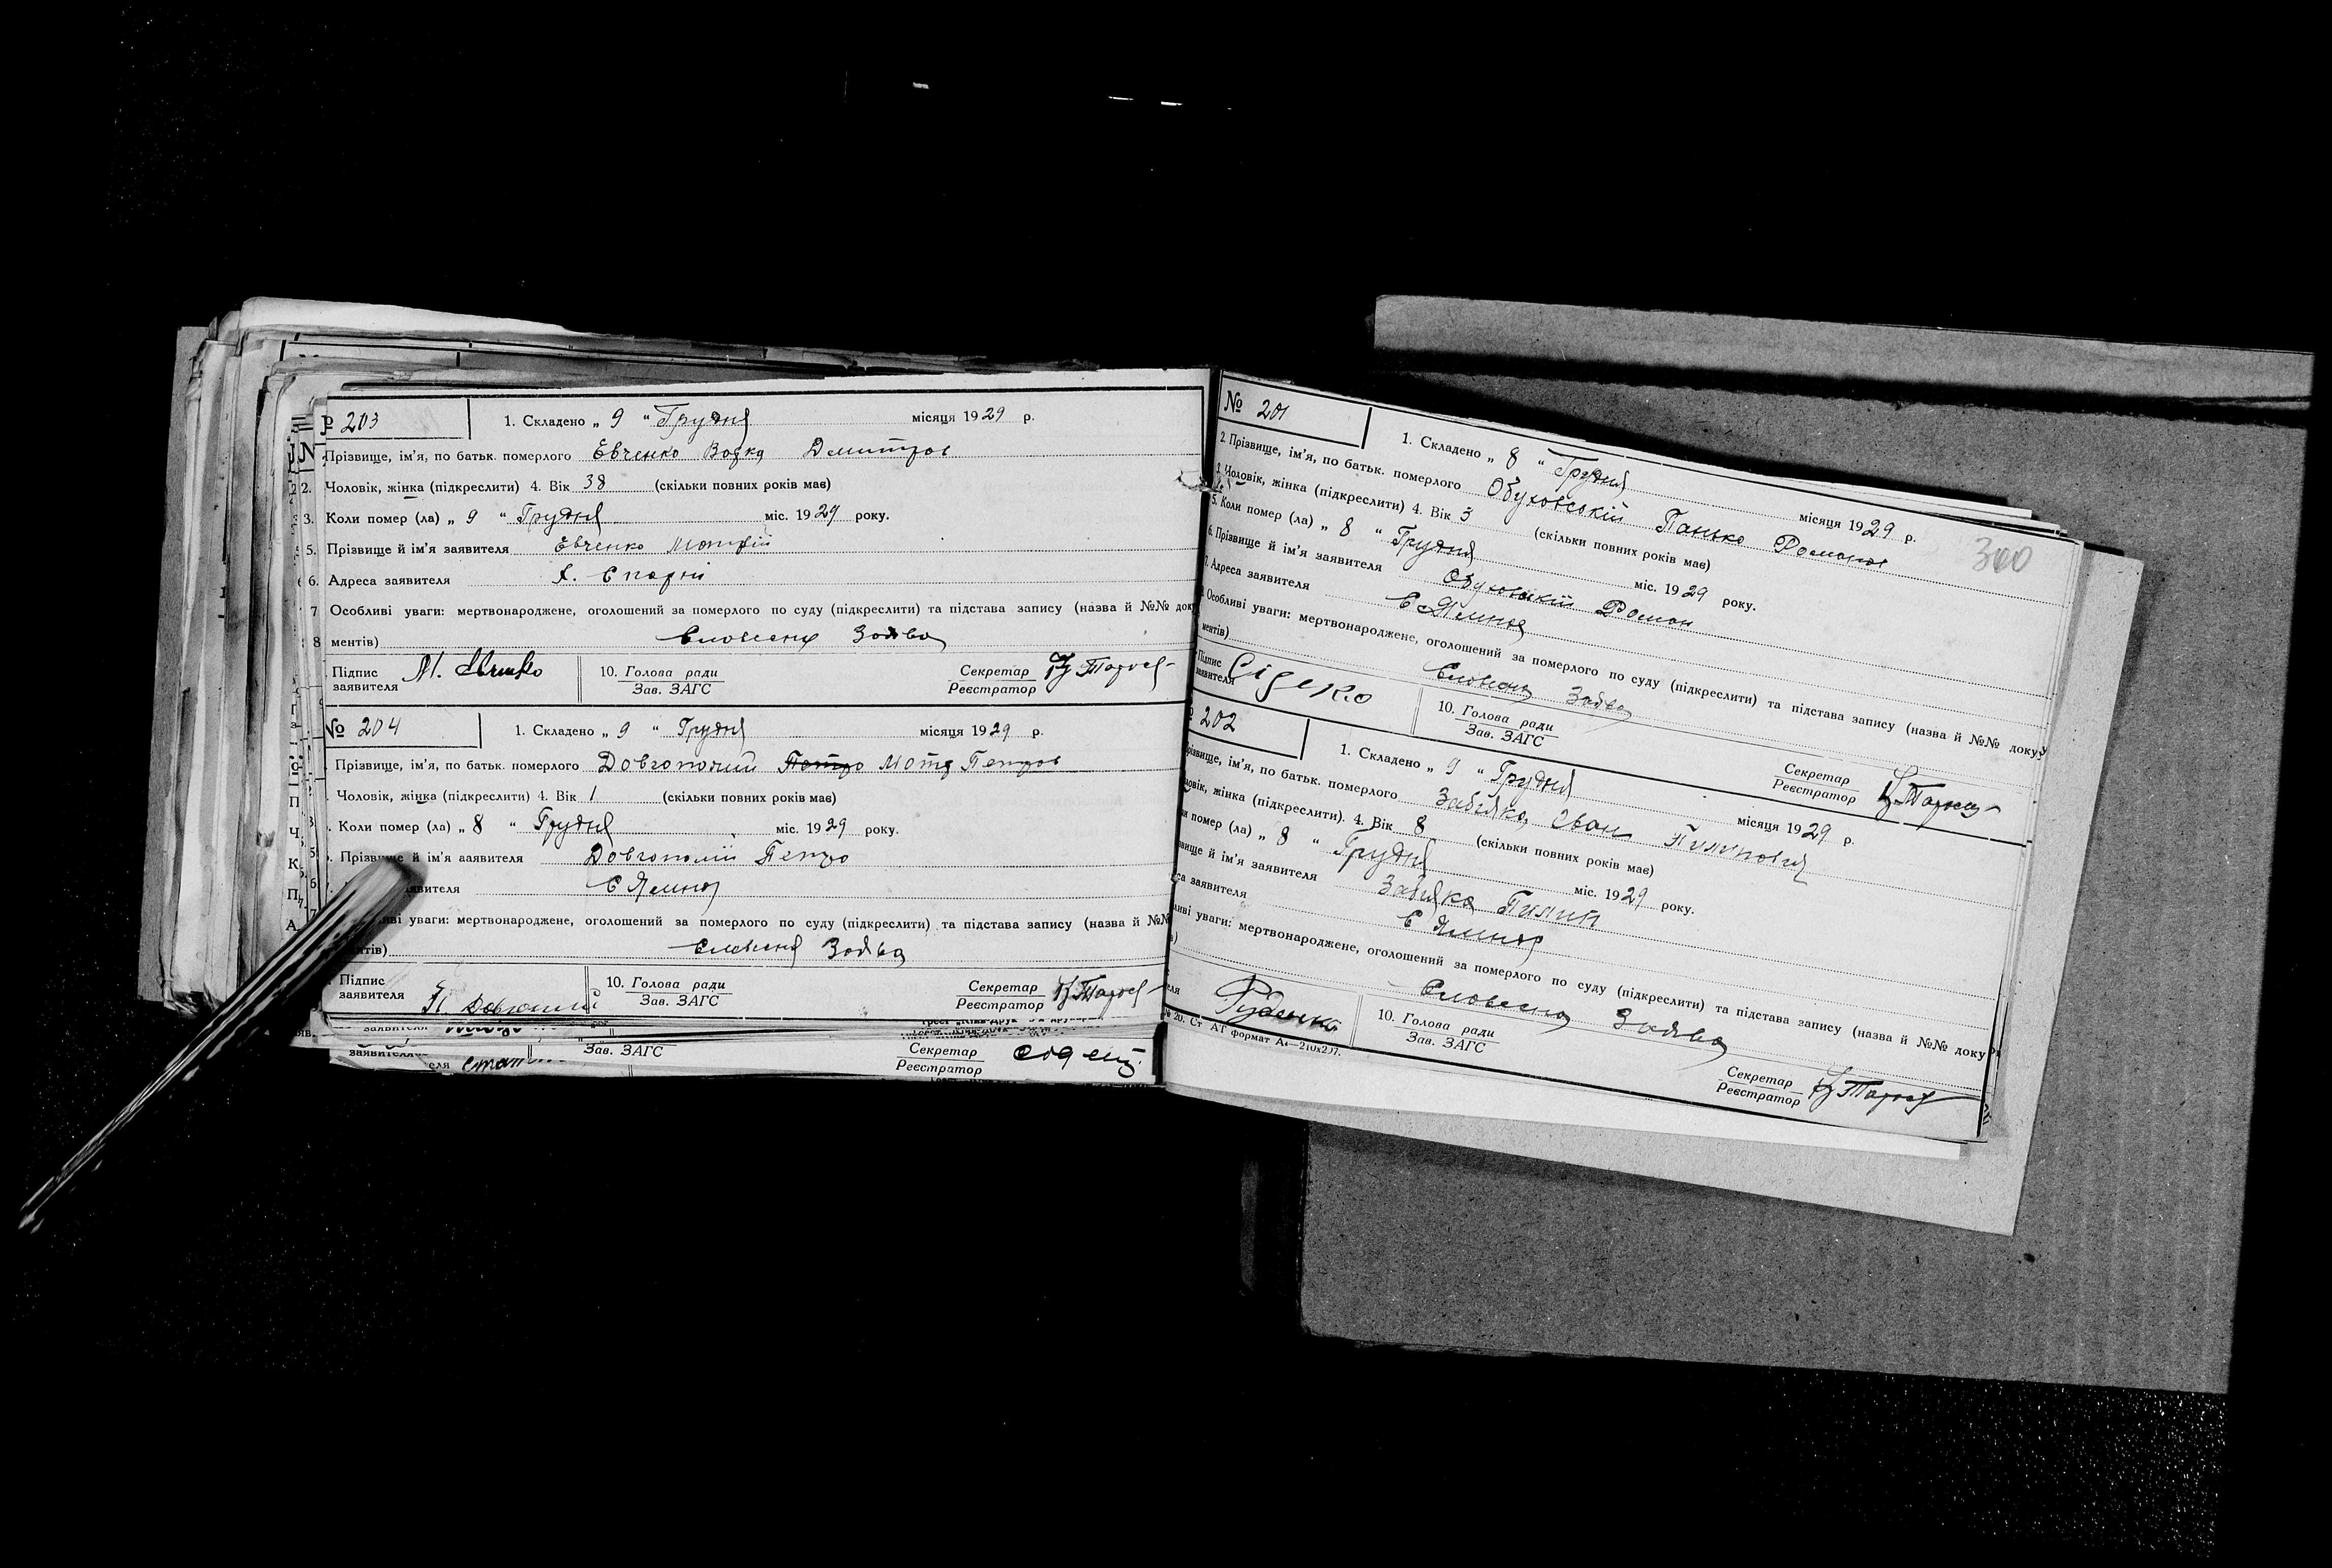 № 203 1. Складено „ 9 “ Грудня місяця 1929 р.
Прізвище, ім’я, по батьк. померлого Евченко Дмитров
Чоловік, жінка (підкреслити) 4. Вік 38 (скільки повних років має)
Коли помер (ла) „ 9 “ Грудня міс. 1929 року.
Прізвище й ім’я заявителя Евченко Мотфій
Адреса заявителя
Особливі уваги: мертвонароджене, оголошений за померлого по суду (підкреслити) та підстава запису (назва й №№ док
ментів) Словесна Заява
Підпис заявителя М. 10. Голова ради Зав. ЗАГС Секретар Реєстратор
№ 204 1. Складено „ 9 “ Грудня місяця 1929 р.
Прізвище, ім’я, по батьк. померлого Довгополий Петро Мотя Петров
Чоловік, жінка (підкреслити) 4. Вік 1 (скільки повних років має)
Коли помер (ла) „ 8 “ Грудня міс. 1929 року.
Прізвище й ім’я заявителя Довгополий Петро
явителя С Ялинця
ві уваги: мертвонароджене, оголошений за померлого по суду (підкреслити) та підстава запису (назва й №№
нтів) Словесна Заява
Підпис заявителя П. Довгополий 10. Голова ради Зав. ЗАГС Секретар Реєстратор
заявителя Зав. ЗАГС Секретар Реєстратор
№ 201 1. Складено „ 8 “ Грудня місяця 1929 р.
2. Прізвище, ім’я, по батьк. померлого Обуховський Панько Романов
3. Чоловік, жінка (підкреслити) 4. Вік 3 (скільки повних років має)
5. Коли помер (ла) „ 8 “ Грудня міс. 1929 року.
6. Прізвище й ім’я заявителя Обуховський Роман
7. Адреса заявителя С Ялинця
Особливі уваги: мертвонароджене, оголошений за померлого по суду (підкреслити) та підстава запису (назва й №№ доку
ментів) Словесна Заява
Підпис заявителя 10. Голова ради Зав. ЗАГС Секретар Реєстратор
300
№ 202 1. Складено „ 9 “ Грудня місяця 1929 р.
різвище, ім’я, по батьк. померлого Забіяка Іван Пилипович
овік, жінка (підкреслити). 4. Вік 8 (скільки повних років має)
и помер (ла) „ 8 “ Грудня міс. 1929 року.
вище й ім’я заявителя Забіяка Пилип
са заявителя С Ялинця
ливі уваги: мертвонароджене, оголошений за померлого по суду (підкреслити) та підстава запису (назва й №№ доку
Словесна Заява
Руденко 10. Голова ради Зав. ЗАГС Секретар Реєстратор
№ 20. Ст АТ формат А4—210х297.